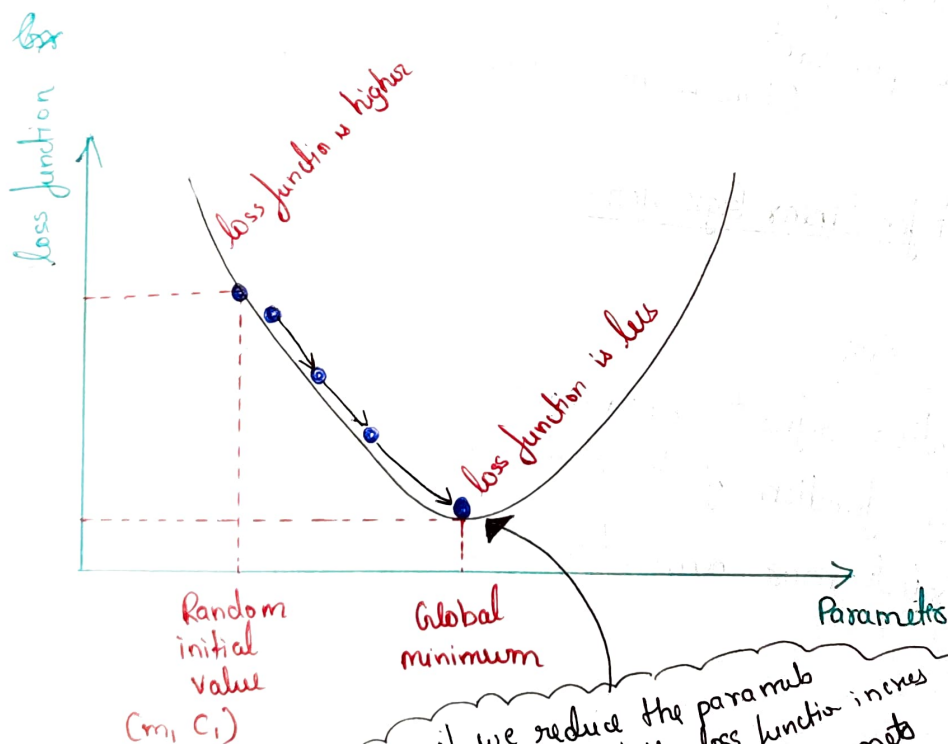 loss function
loss function is higher
loss function is less
Parametes
Random
initial
value
(m, C₁)
Global
minimum
if we reduce the paramub
loss function incres